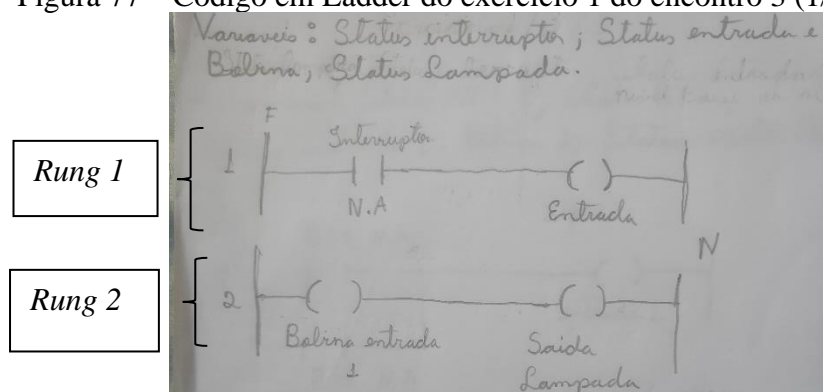 Figura 77 – Código em Ladder do exercício 1 do encontro 3 (1/
Variaveis : Status interruptor ; Status entrada e
Bobina, Status Lampada.
F
Interruptor
Rung 1
1
( )
N.A
Entrada
N
Rung 2
2
( )
( )
Bobina entrada
1
Saida
Lampada